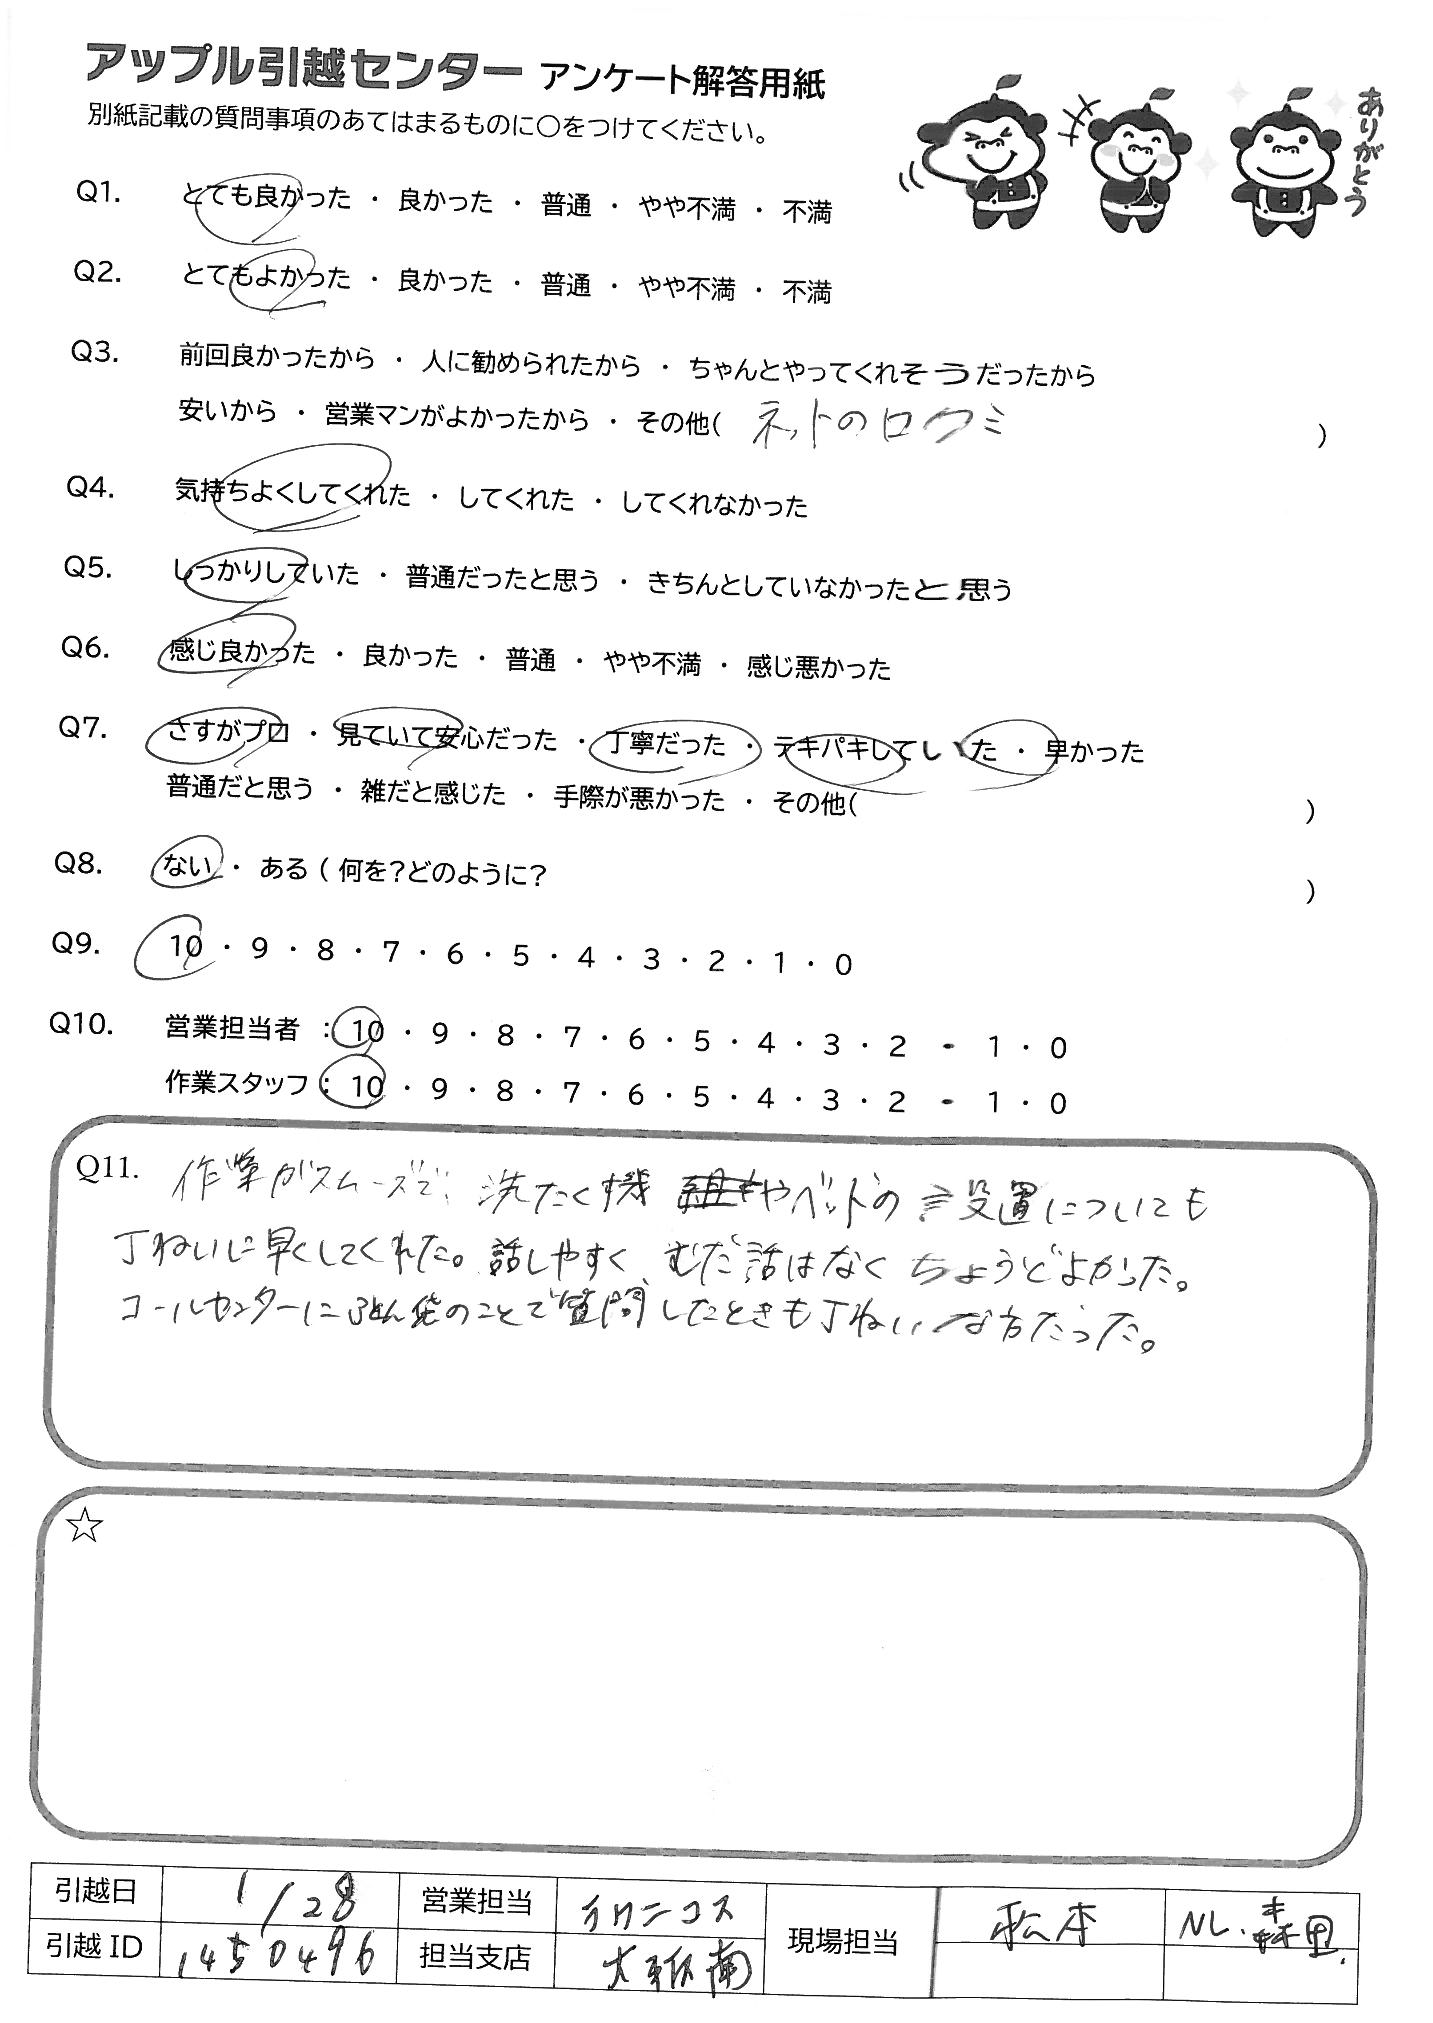 アップル引越センター アンケート解答用紙
別紙記載の質問事項のあてはまるものに○をつけてください。
ありがとう
Q1. とても良かった ・ 良かった ・ 普通 ・ やや不満 ・ 不満
Q2. とてもよかった ・ 良かった ・ 普通 ・ やや不満 ・ 不満
Q3. 前回良かったから ・ 人に勧められたから ・ ちゃんとやってくれそうだったから
安いから ・ 営業マンがよかったから ・ その他( ネットの口クミ )
Q4. 気持ちよくしてくれた ・ してくれた ・ してくれなかった
Q5. しっかりしていた ・ 普通だったと思う ・ きちんとしていなかったと思う
Q6. 感じ良かった ・ 良かった ・ 普通 ・ やや不満 ・ 感じ悪かった
Q7. さすがプロ ・ 見ていて安心だった ・ 丁寧だった ・ テキパキしていた ・ 早かった
普通だと思う ・ 雑だと感じた ・ 手際が悪かった ・ その他( )
Q8. ない ・ ある ( 何を?どのように? )
Q9. 10 ・ 9 ・ 8 ・ 7 ・ 6 ・ 5 ・ 4 ・ 3 ・ 2 ・ 1 ・ 0
Q10. 営業担当者 : 10 ・ 9 ・ 8 ・ 7 ・ 6 ・ 5 ・ 4 ・ 3 ・ 2 ・ 1 ・ 0
作業スタッフ : 10 ・ 9 ・ 8 ・ 7 ・ 6 ・ 5 ・ 4 ・ 3 ・ 2 ・ 1 ・ 0
Q11. 作業がスムーズで、洗たくす機やベッドの設置についても
丁ねいに早くしてくれた。話しやすく、むだ話はなくちょうどよかった。
コールセンターにふとん袋のことで質問したときも丁ねいな方だった。
☆
引越日 1/28 営業担当 現場担当 松本 NL.森里.
引越ID 1450496 担当支店 大阪南